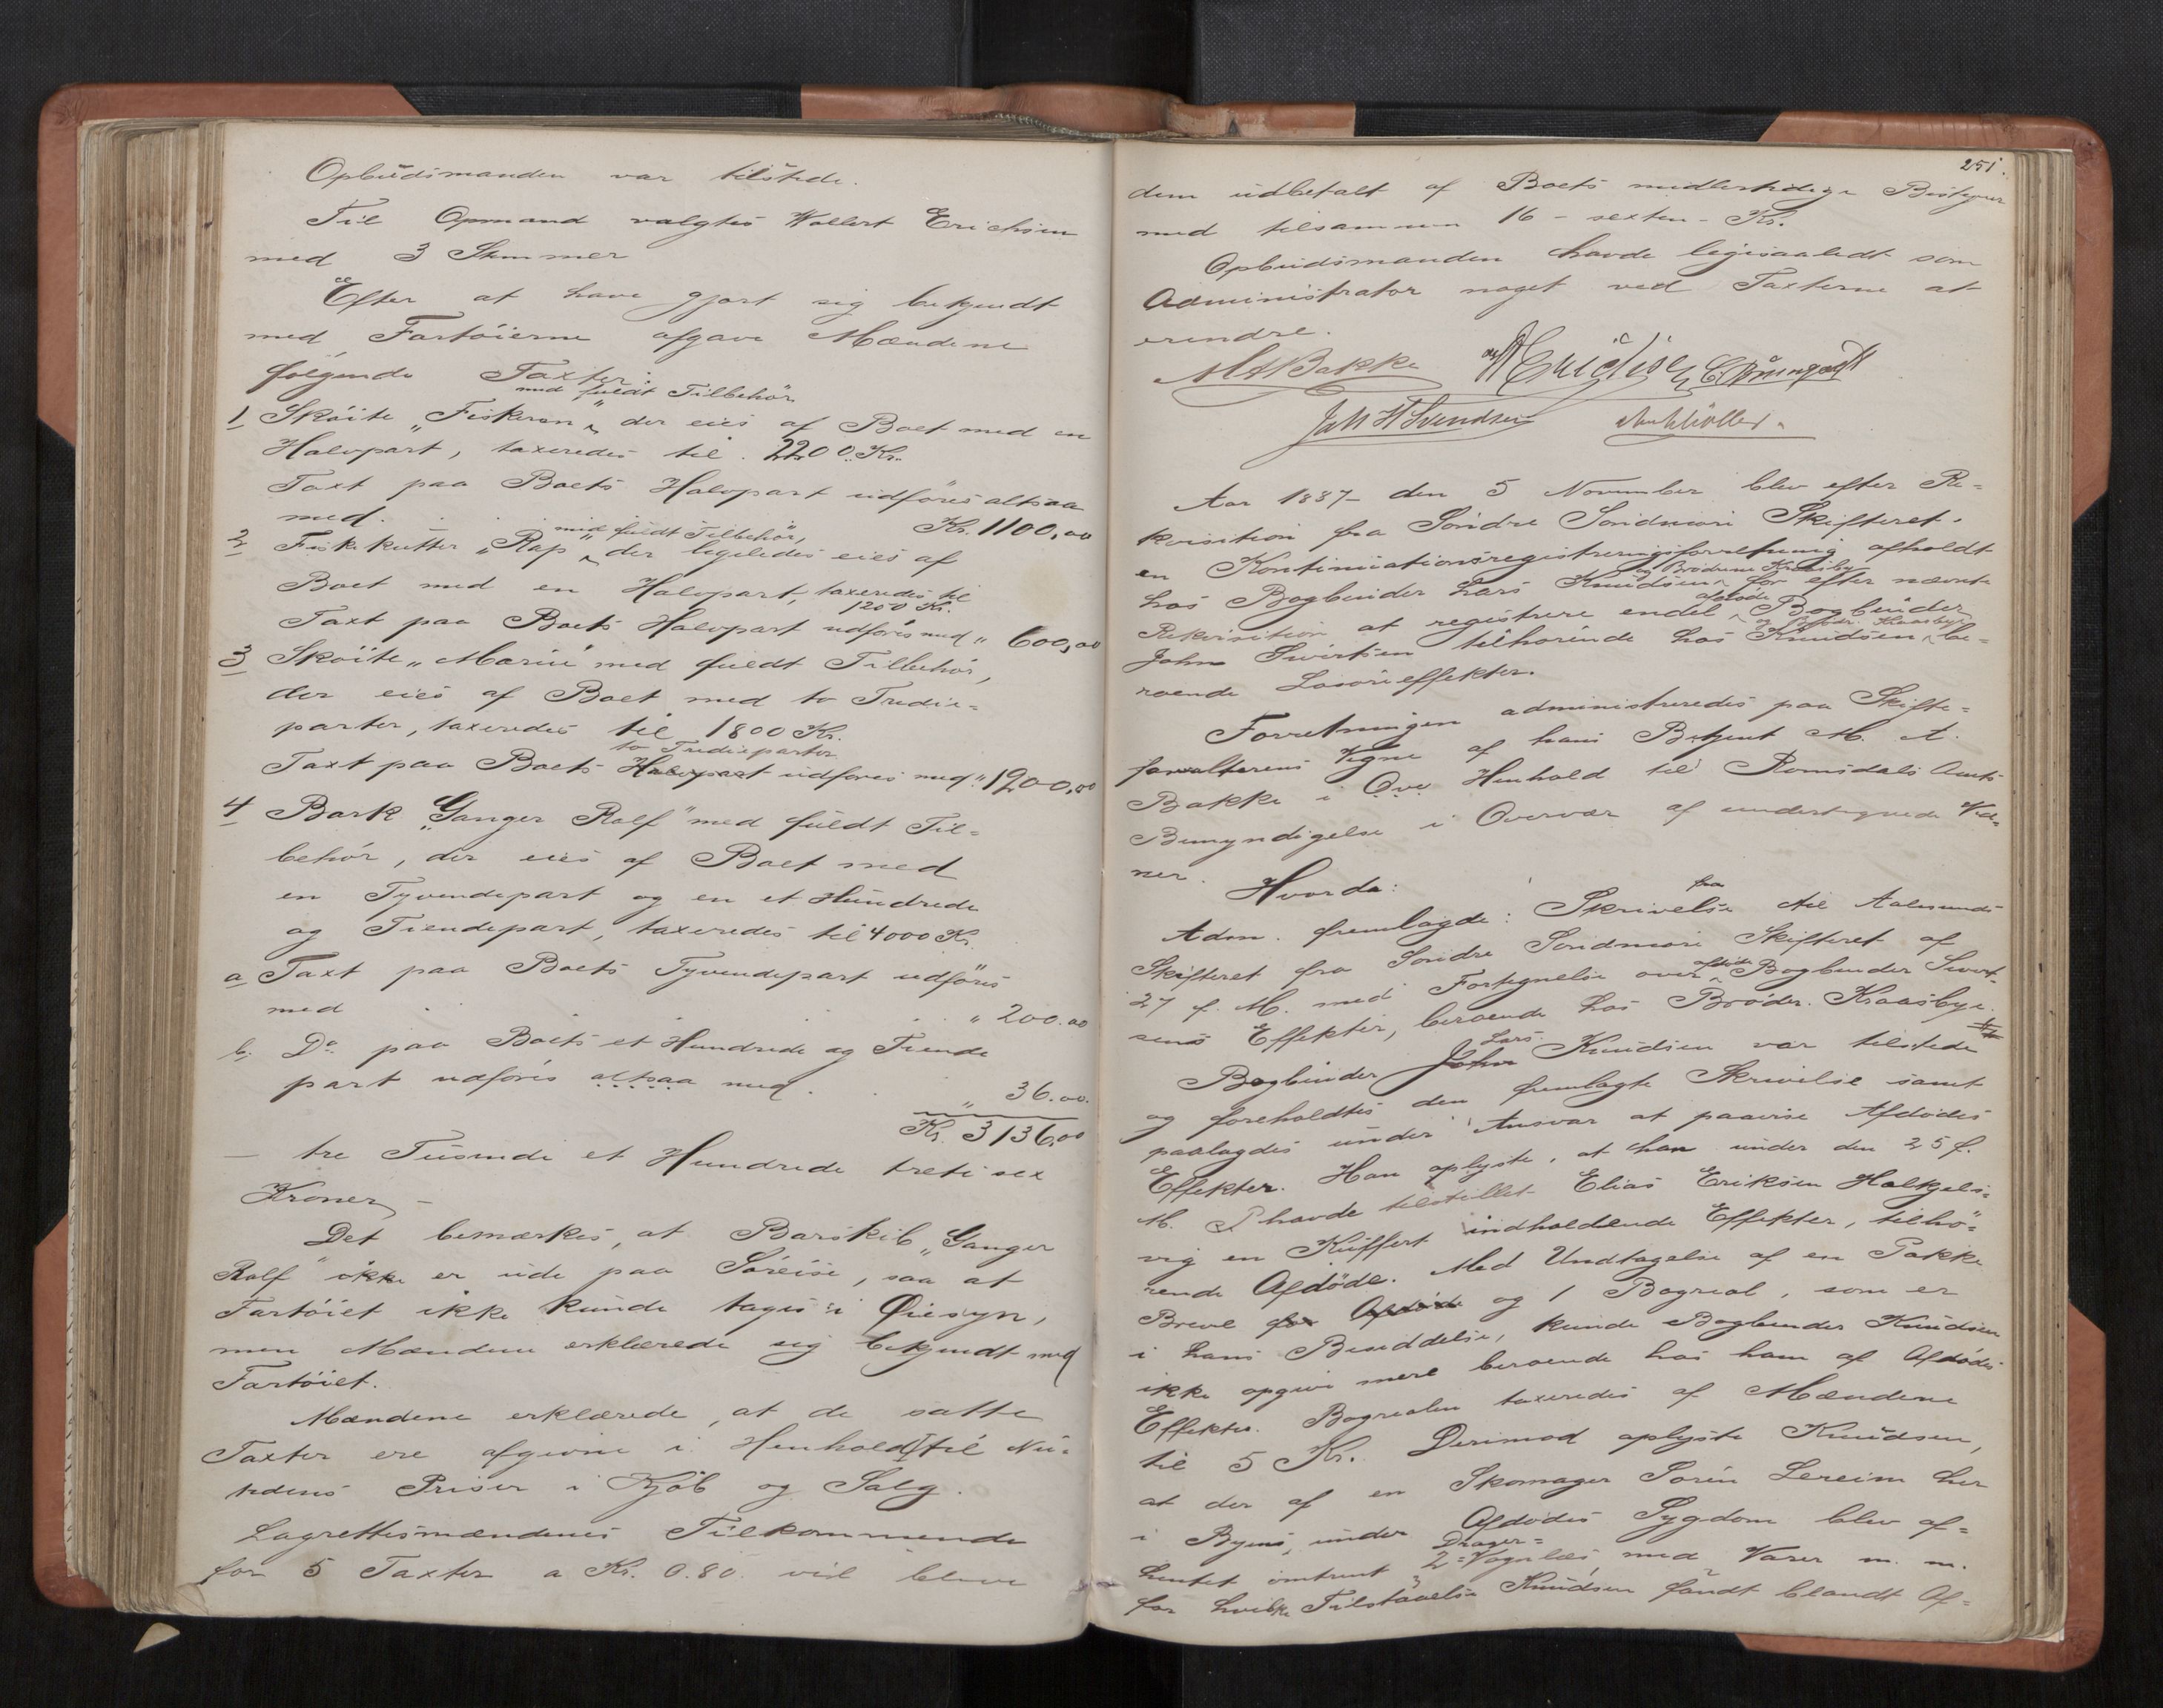 Opbudsmanden var tilstede.
Til Opmand valgtes Wollert Erichsen
med 3 Stemmer
Efter at have gjort sig bekjendt
med Fartøierne afgave Mændene
følgende Taxter:
med fuldt Tilbehör
1 Sköite "Fiskeren" der eies af Boet med en
Halvpart, taxeredes til 2200 Kr.
Taxt paa Boets Halvpart udföres altsaa
med . . . Kr. 1100,00
med fuldt Tilbehör,
2 Fiskekutter "Rap" der ligeledes eies af
Boet med en Halvpart, taxeredes til
1200 Kr.
Taxt paa Boets Halvpart udföres med " 600,00
3 Sköite "Marie" med fuldt Tilbehör,
der eies af Boet med to Tredie-
parter, taxeredes til 1800 Kr.
to Tredieparter
Taxt paa Boets Halvpart udföres med " 1200,00
4 Bark "Ganger Rolf" med fuldt Til-
behör, der eies af Boet med
en Tyvendepart og en et Hundrede
og Tiendepart, taxeredes til 4000 Kr.
a Taxt paa Boets Tyvendepart udföres
med . . . " 200.00
b. Do paa Boets et Hundrede og Tiende
part udföres altsaa med . . " 36.00.
Kr. 3136.00
— tre Tusinde et Hundrede treti sex
Kroner —
Det bemærkes, at Barskib "Ganger
Rolf" ikke er ude paa Söreise, saa at
Fartöiet ikke kunde tages i Øiesyn,
men Mændene erklærede sig bekjendt med
Fartöiet.
Mændene erklærede, at de satte
Taxter ere afgivne i Henhold til Nu-
tidens Priser i Kjöb og Salg.
Lagrettesmændenes Tilkommende
for 5 Taxter a Kr. 0.80 vil blive
251.
dem udbetalt af Boets midlertidige Bestyrer
med tilsammen 16 - sexten - Kr.
Opbudsmanden havde ligesaalidt som
Administrator noget ved Taxterne at
erindre.
M A Bakke W Erichsen
Joh H Svendsen
Aar 1887 den 5 November blev efter Re-
kvisition fra Söndre Söndmöre Skifteret
en Kontinuationsregistreringsforretning afholdt
og Brödrene Kraasbye
hos Bogbinder Lars Knudsen for efter nævnte
afdöde
Rekvisition at registrere endel Bogbinder
og Brödr. Kraasbye
John Sivertsen tilhörende hos Knudsen be-
roende Lösöreeffekter.
Forretningen administreredes paa Skifte-
forvalterens Vegne af hans Betjent M. A.
Bakke i Henhold til Romsdals Amts
Bemyndigelse i Overvær af undertegnede Vid-
ner.
Hvorda:
fra
Adm. fremlagde: Skrivelse til Aalesunds
Skifteret fra Söndre Söndmöre Skifteret af
afdöde
27 f. M. med Fortegnelse over Bogbinder Sivert-
sens Effekter, beroende hos Brödr. Kraasbye.
Lars
Bogbinder John Knudsen var tilstede
og foreholdtes den fremlagte Skrivelse samt
paalagdes under Ansvar at paavise Afdödes
Effekter. Han oplyste, at han under den 25 f.
M. havde tilstillet Elias Eriksen Holkjels-
vig en Kuffert indholdende Effekter, tilhö-
rende Afdöde. Med Undtagelse af en Pakke
Breve for Afdöde og 1 Bogreol, som er
i hans Besiddelse, kunde Bogbinder Knudsen
ikke opgive mere beroende hos ham af Afdödes
Effekter. Bogreolen taxeredes af Mændene
til 5 Kr. Derimod oplyste Knudsen,
at der af en Skomager Sören Lereim her
i Byens, under Afdödes Sygdom blev af-
Drager-
hentet omtrent 2 Vognlæs med Varer m. m.
for hvilke Tilstaaelse Knudsen fandt blandt Af-